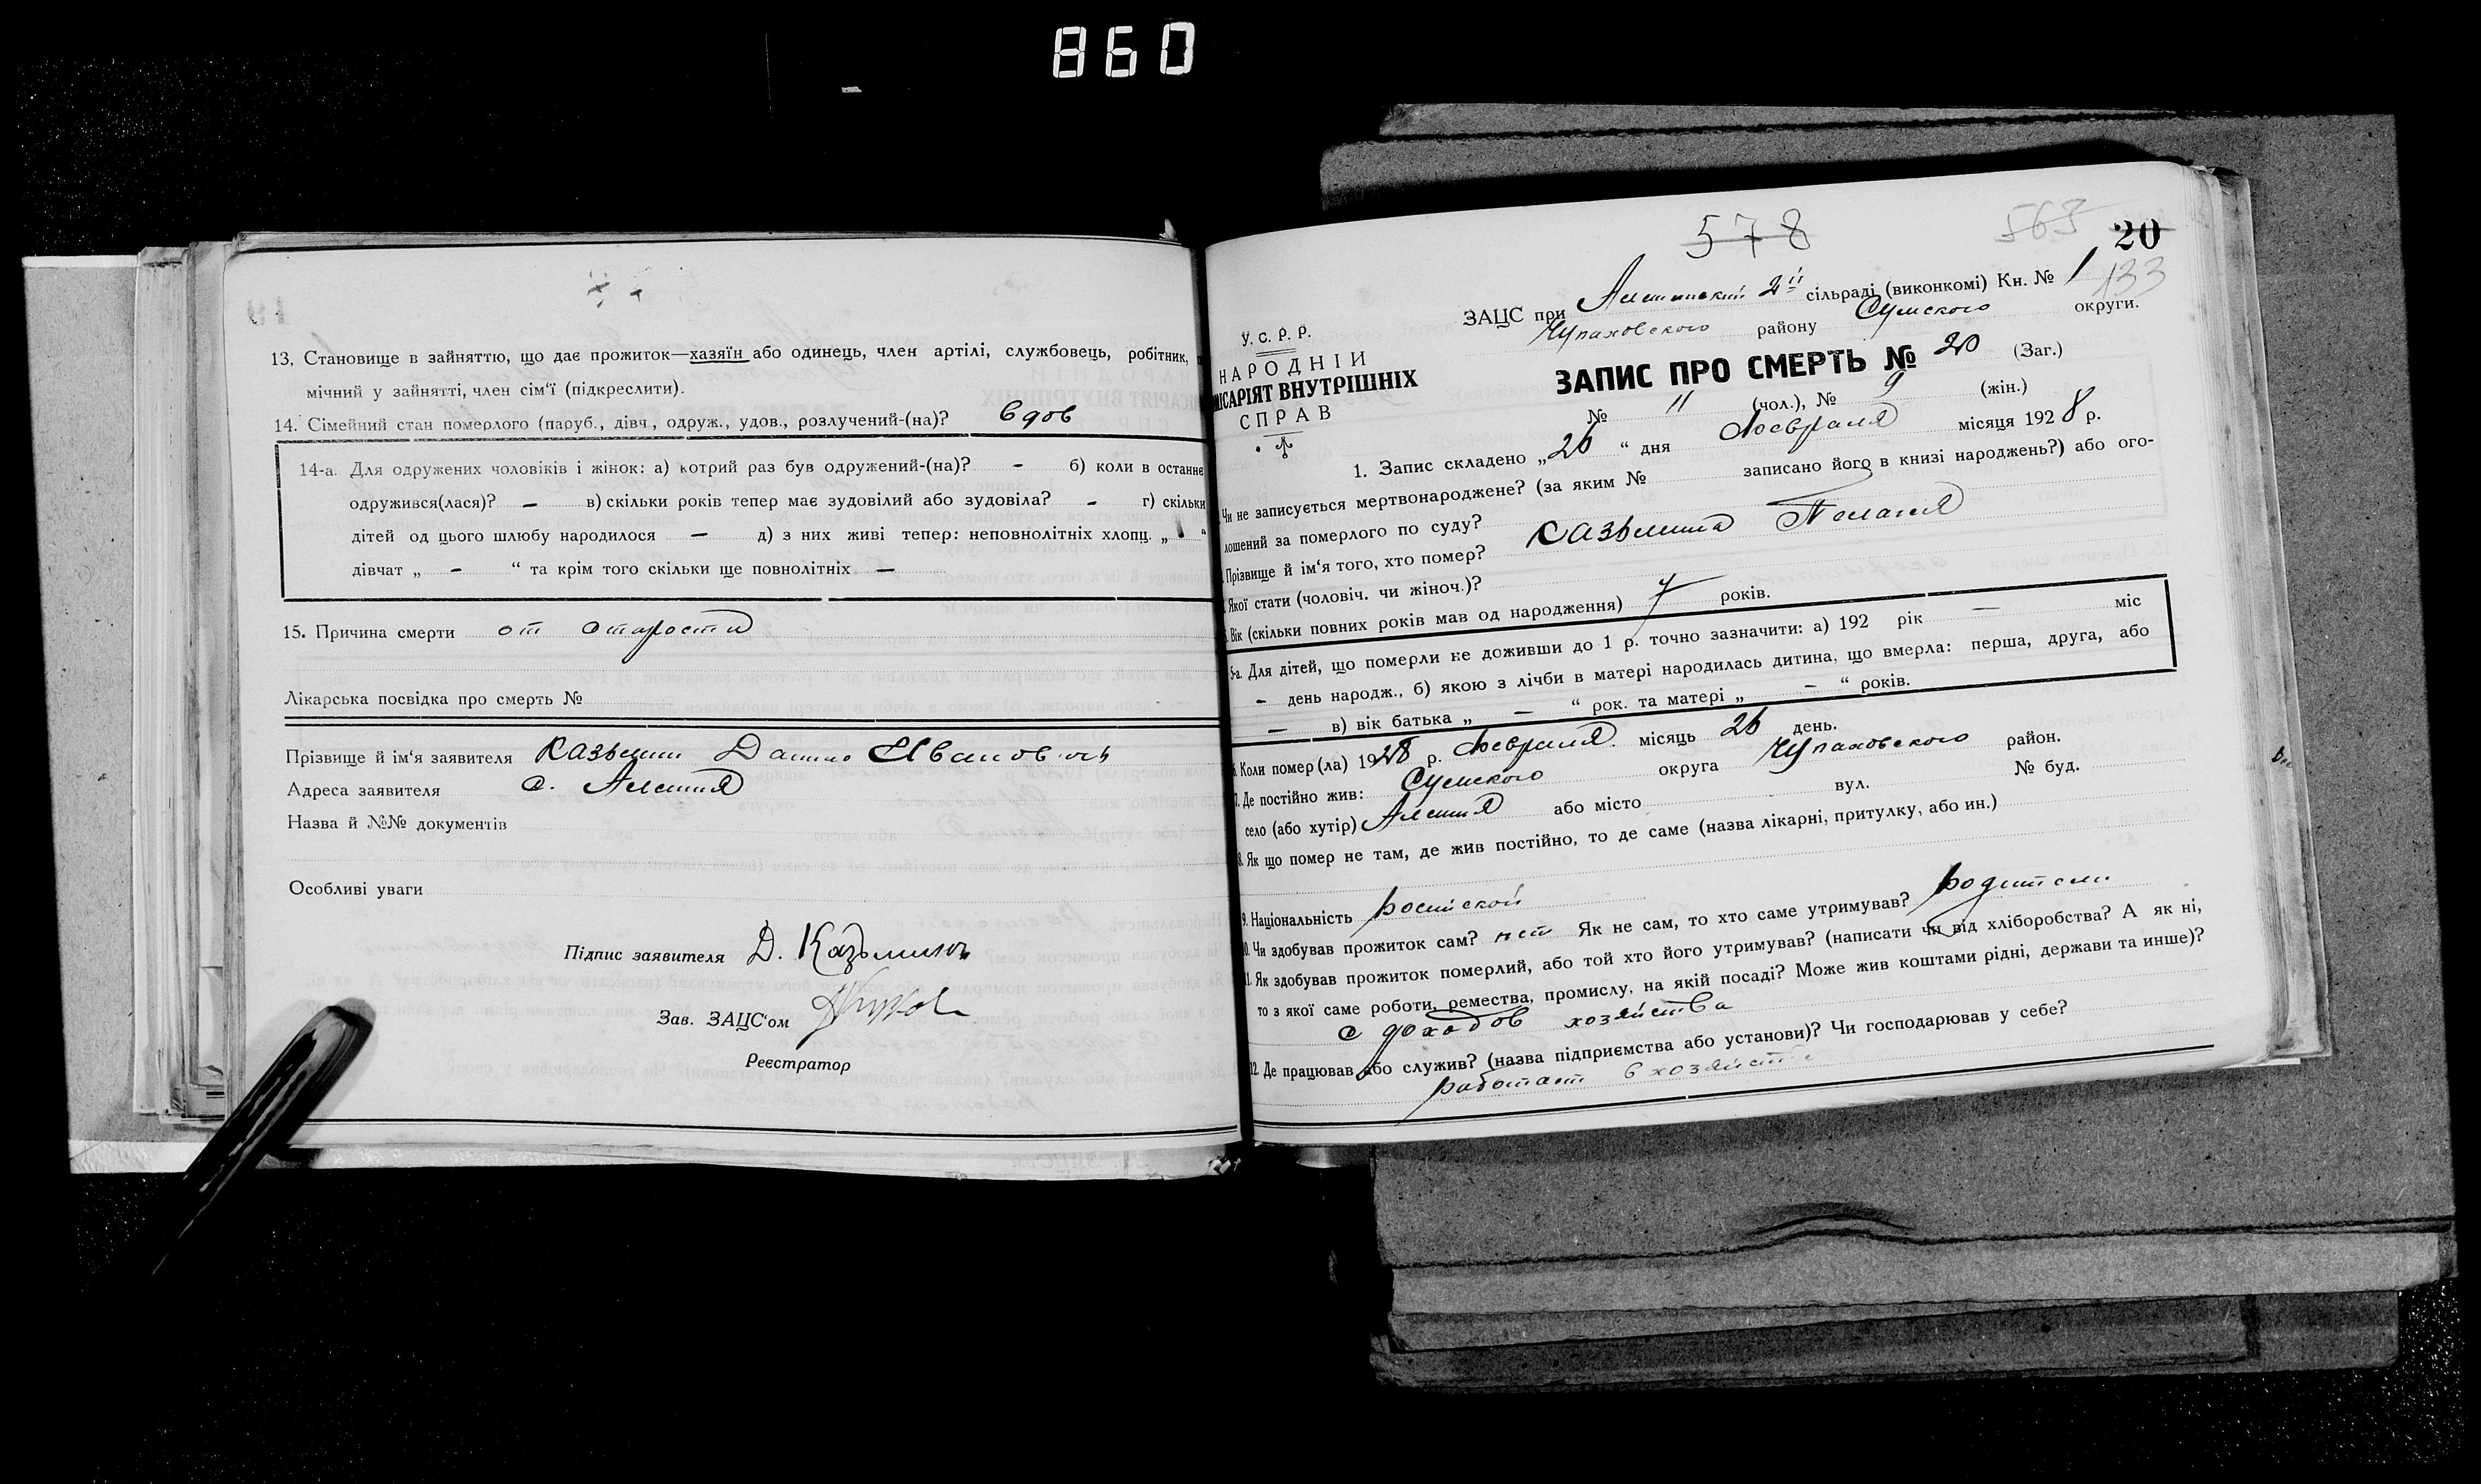 860
13. Становище в зайняттю, що дає прожиток—хазяїн або одинець, член артілі, службовець, робітник,
мічний у зайнятті, член сім'ї (підкреслити).
14. Сімейний стан померлого (паруб., дівч., одруж., удов., розлучений-(на)? вдов
14-а. Для одружених чоловіків і жінок: а) котрий раз був одружений-(на)? - б) коли в останнє
одружився(лася)? — в) скільки років тепер має зудовілий або зудовіла? - г) скільки
дітей од цього шлюбу народилося — д) з них живі тепер: неповнолітніх хлопц. „ “
дівчат „ - “ та крім того скільки ще повнолітніх —
15. Причина смерти от старости
Лікарська посвідка про смерть №
Прізвище й ім'я заявителя Казьмин Данило Иванович
Адреса заявителя с. Алешня
Назва й №№ документів
Особливі уваги
Підпис заявителя Д. Казьминъ
Зав. ЗАЦС'ом
Реєстратор
578
563
20
133
ЗАЦС при Алешнский 2й сільраді (виконкомі) Кн. № 1
Чупаховского району Сумского округи.
У. С. Р. Р.
НАРОДНІЙ
ІСАРІЯТ ВНУТРІШНІХ
СПРАВ
ЗАПИС ПРО СМЕРТЬ № 20 (Заг.)
№ 11 (чол.), № 9 (жін.)
1. Запис складено „26 “ дня Февраля місяця 1928 р.
Чи не записується мертвонароджене? (за яким № записано його в книзі народжень?) або ого-
лошений за померлого по суду?
Прізвище й ім'я того, хто помер? Казьмина Пелагия
Якої стати (чоловіч. чи жіноч.)?
Вік (скільки повних років мав од народження) 7 років.
5-а. Для дітей, що померли не доживши до 1 р. точно зазначити: а) 192 рік — міс
— день народж., б) якою з лічби в матері народилась дитина, що вмерла: перша, друга, або
— в) вік батька „ — “ рок. та матері „ — “ років.
Коли помер(ла) 1928 р. Февраля місяць 26 день.
7. Де постійно жив: Сумского округа Чупаховского район.
село (або хутір) Алешня або місто вул. № буд.
8. Як що помер не там, де жив постійно, то де саме (назва лікарні, притулку, або ин.)
9. Національність росийской
10. Чи здобував прожиток сам? нет Як не сам, то хто саме утримував? родители
11. Як здобував прожиток померлий, або той хто його утримував? (написати чи від хліборобства? А як ні,
то з якої саме роботи, ремества, промислу, на якій посаді? Може жив коштами рідні, держави та инше)?
с доходов хозяйства
12. Де працював або служив? (назва підприємства або установи)? Чи господарював у себе?
работает в хозяйстве